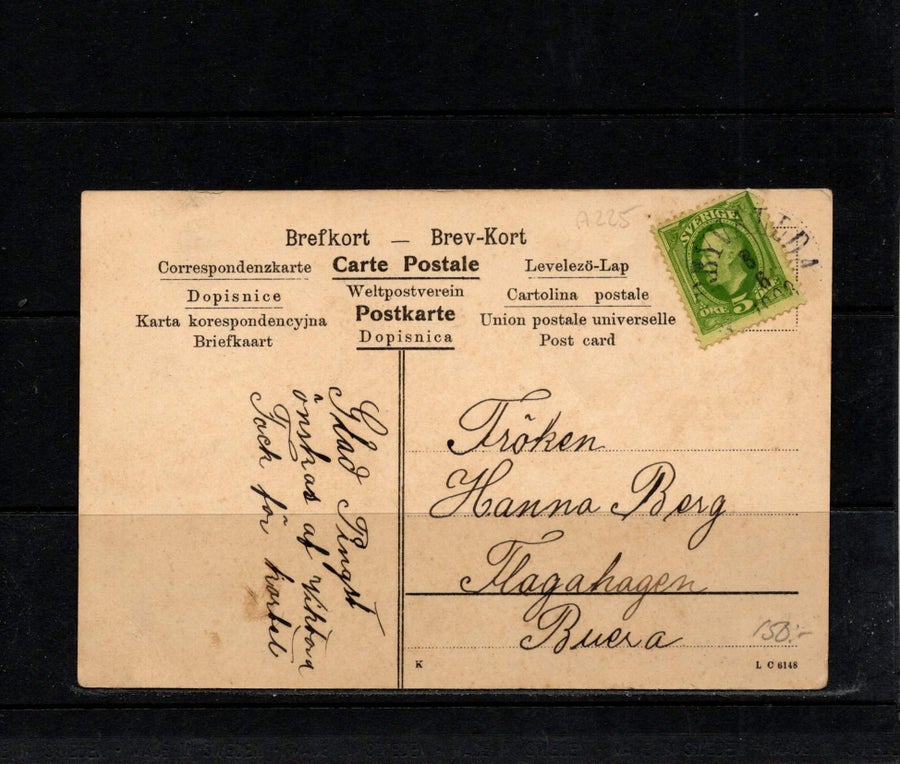 A225
Brefkort — Brev-Kort
Correspondenzkarte Carte Postale Levelezö-Lap
Dopisnice Weltpostverein Cartolina postale
Karta korespondencyjna Postkarte Union postale universelle
Briefkaart Dopisnica Post card
SVERIGE
5
ÖRE
8
6
Glad Pingst
önskas af Viktoria
Tack för kortet
Fröken
Hanna Berg
Flagahagen
Buera
150:-
K
L C 6148